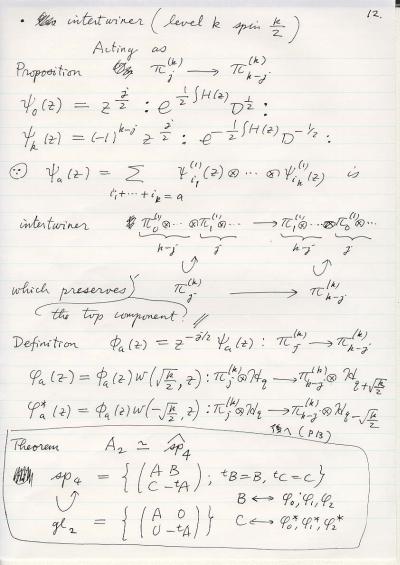 12.
• intertwiner (level k spin k/2)
Acting as
Proposition π_j^{(k)} → π_{k-j}^{(k)}
ψ_0(z) = z^{j/2} : e^{1/2 ∫H(z)} D^{1/2} :
ψ_k(z) = (-1)^{k-j} z^{j/2} : e^{-1/2 ∫H(z)} D^{-1/2} :
∵ ψ_a(z) = Σ_{i_1+⋯+i_k=a} ψ_{i_1}^{(1)}(z) ⊗ ⋯ ⊗ ψ_{i_k}^{(1)}(z) is
intertwiner π_0^{(1)}⊗⋯⊗π_1^{(1)}⊗⋯ → π_1^{(1)}⊗⋯⊗π_0^{(1)}⊗⋯
k-j j k-j j
which preserves π_j^{(k)} → π_{k-j}^{(k)}
the top component. //
Definition Φ_a(z) = z^{-j/2} ψ_a(z) : π_j^{(k)} → π_{k-j}^{(k)}
φ_a(z) = Φ_a(z) W(√(k/2), z) : π_j^{(k)} ⊗ H_q → π_{k-j}^{(k)} ⊗ H_{q+√(k/2)}
φ_a^*(z) = Φ_a(z) W(-√(k/2), z) : π_j^{(k)} ⊗ H_q → π_{k-j}^{(k)} ⊗ H_{q-√(k/2)}
(P13)
Theorem A_2 ≃ \widehat{sp}_4
sp_4 = { (A B; C -ᵗA) ; ᵗB = B, ᵗC = C }
∪ B ↔ φ_0, φ_1, φ_2
gl_2 = { (A 0; 0 -ᵗA) } C ↔ φ_0^*, φ_1^*, φ_2^*